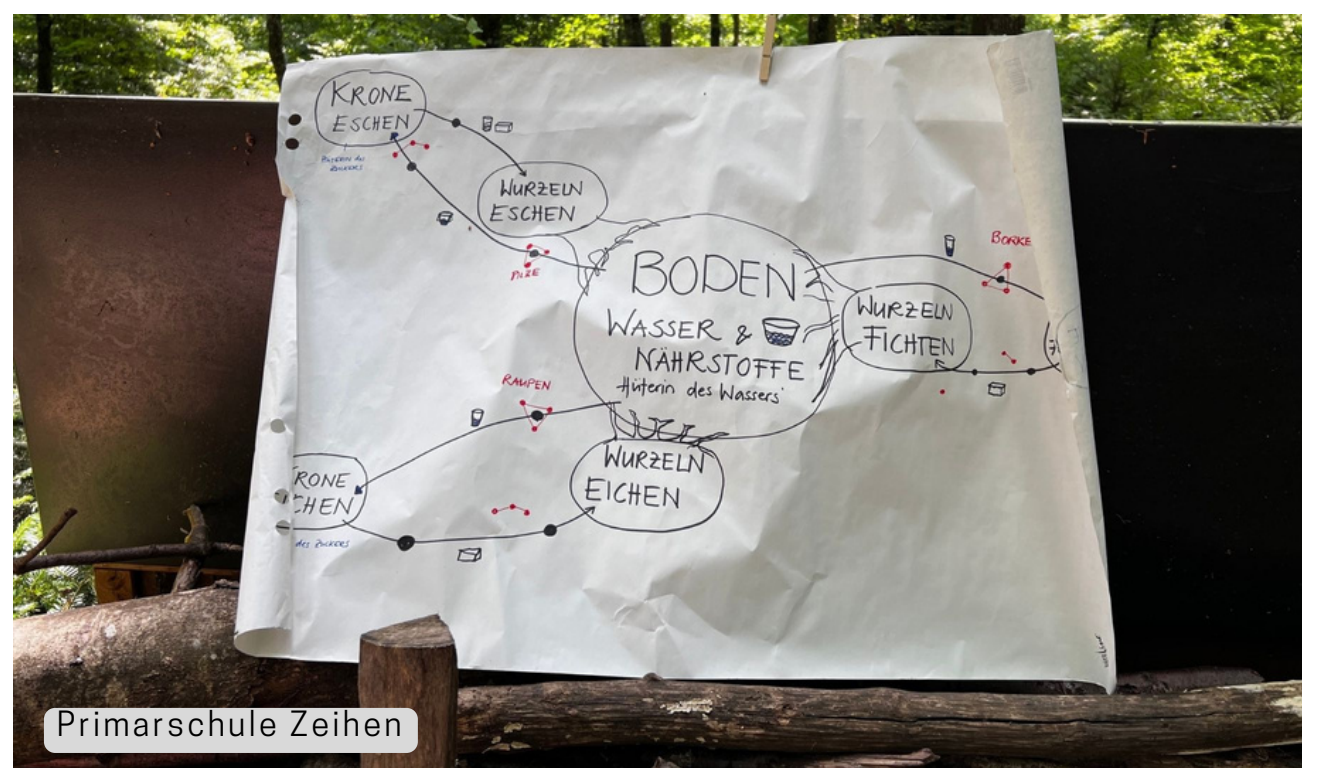 KRONE
ESCHEN
WURZELN
ESCHEN
PILZE
BODEN
WASSER &
NÄHRSTOFFE
Hüterin des Wassers
BORKE
WURZELN
FICHTEN
RAUPEN
RONE
CHEN
des ZUCKERS
WURZELN
EICHEN
Primarschule Zeihen